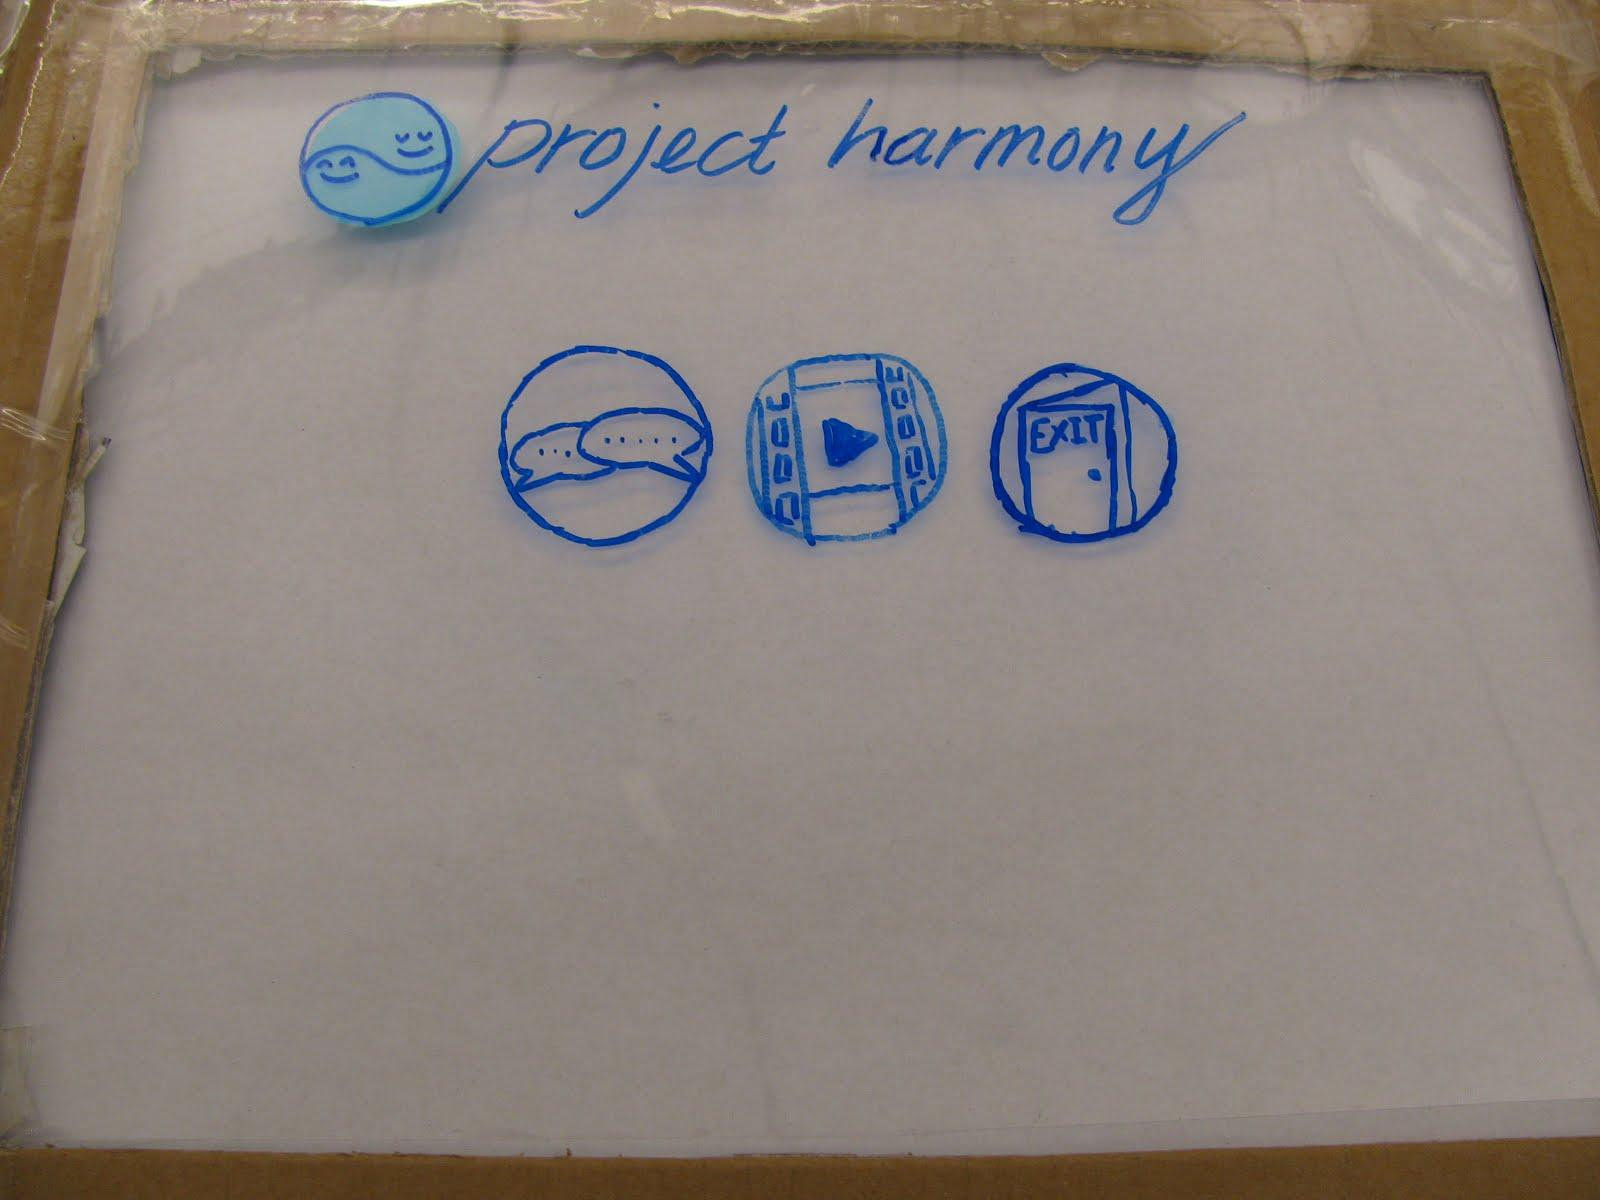 project harmony
EXIT